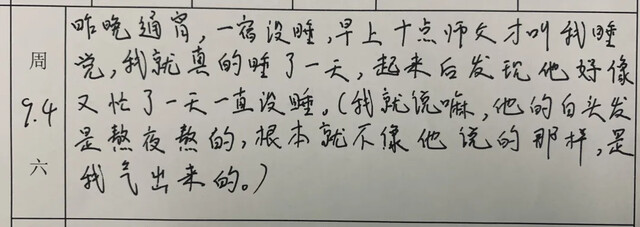 昨晚通宵，一宿没睡，早上十点师父才叫我睡
周
觉，我就真的睡了一天，起来后发现他好像
9.4
又忙了一天一直没睡。（我就说嘛，他的白头发
是熬夜熬的，根本就不像他说的那样，是
六
我气出来的。）